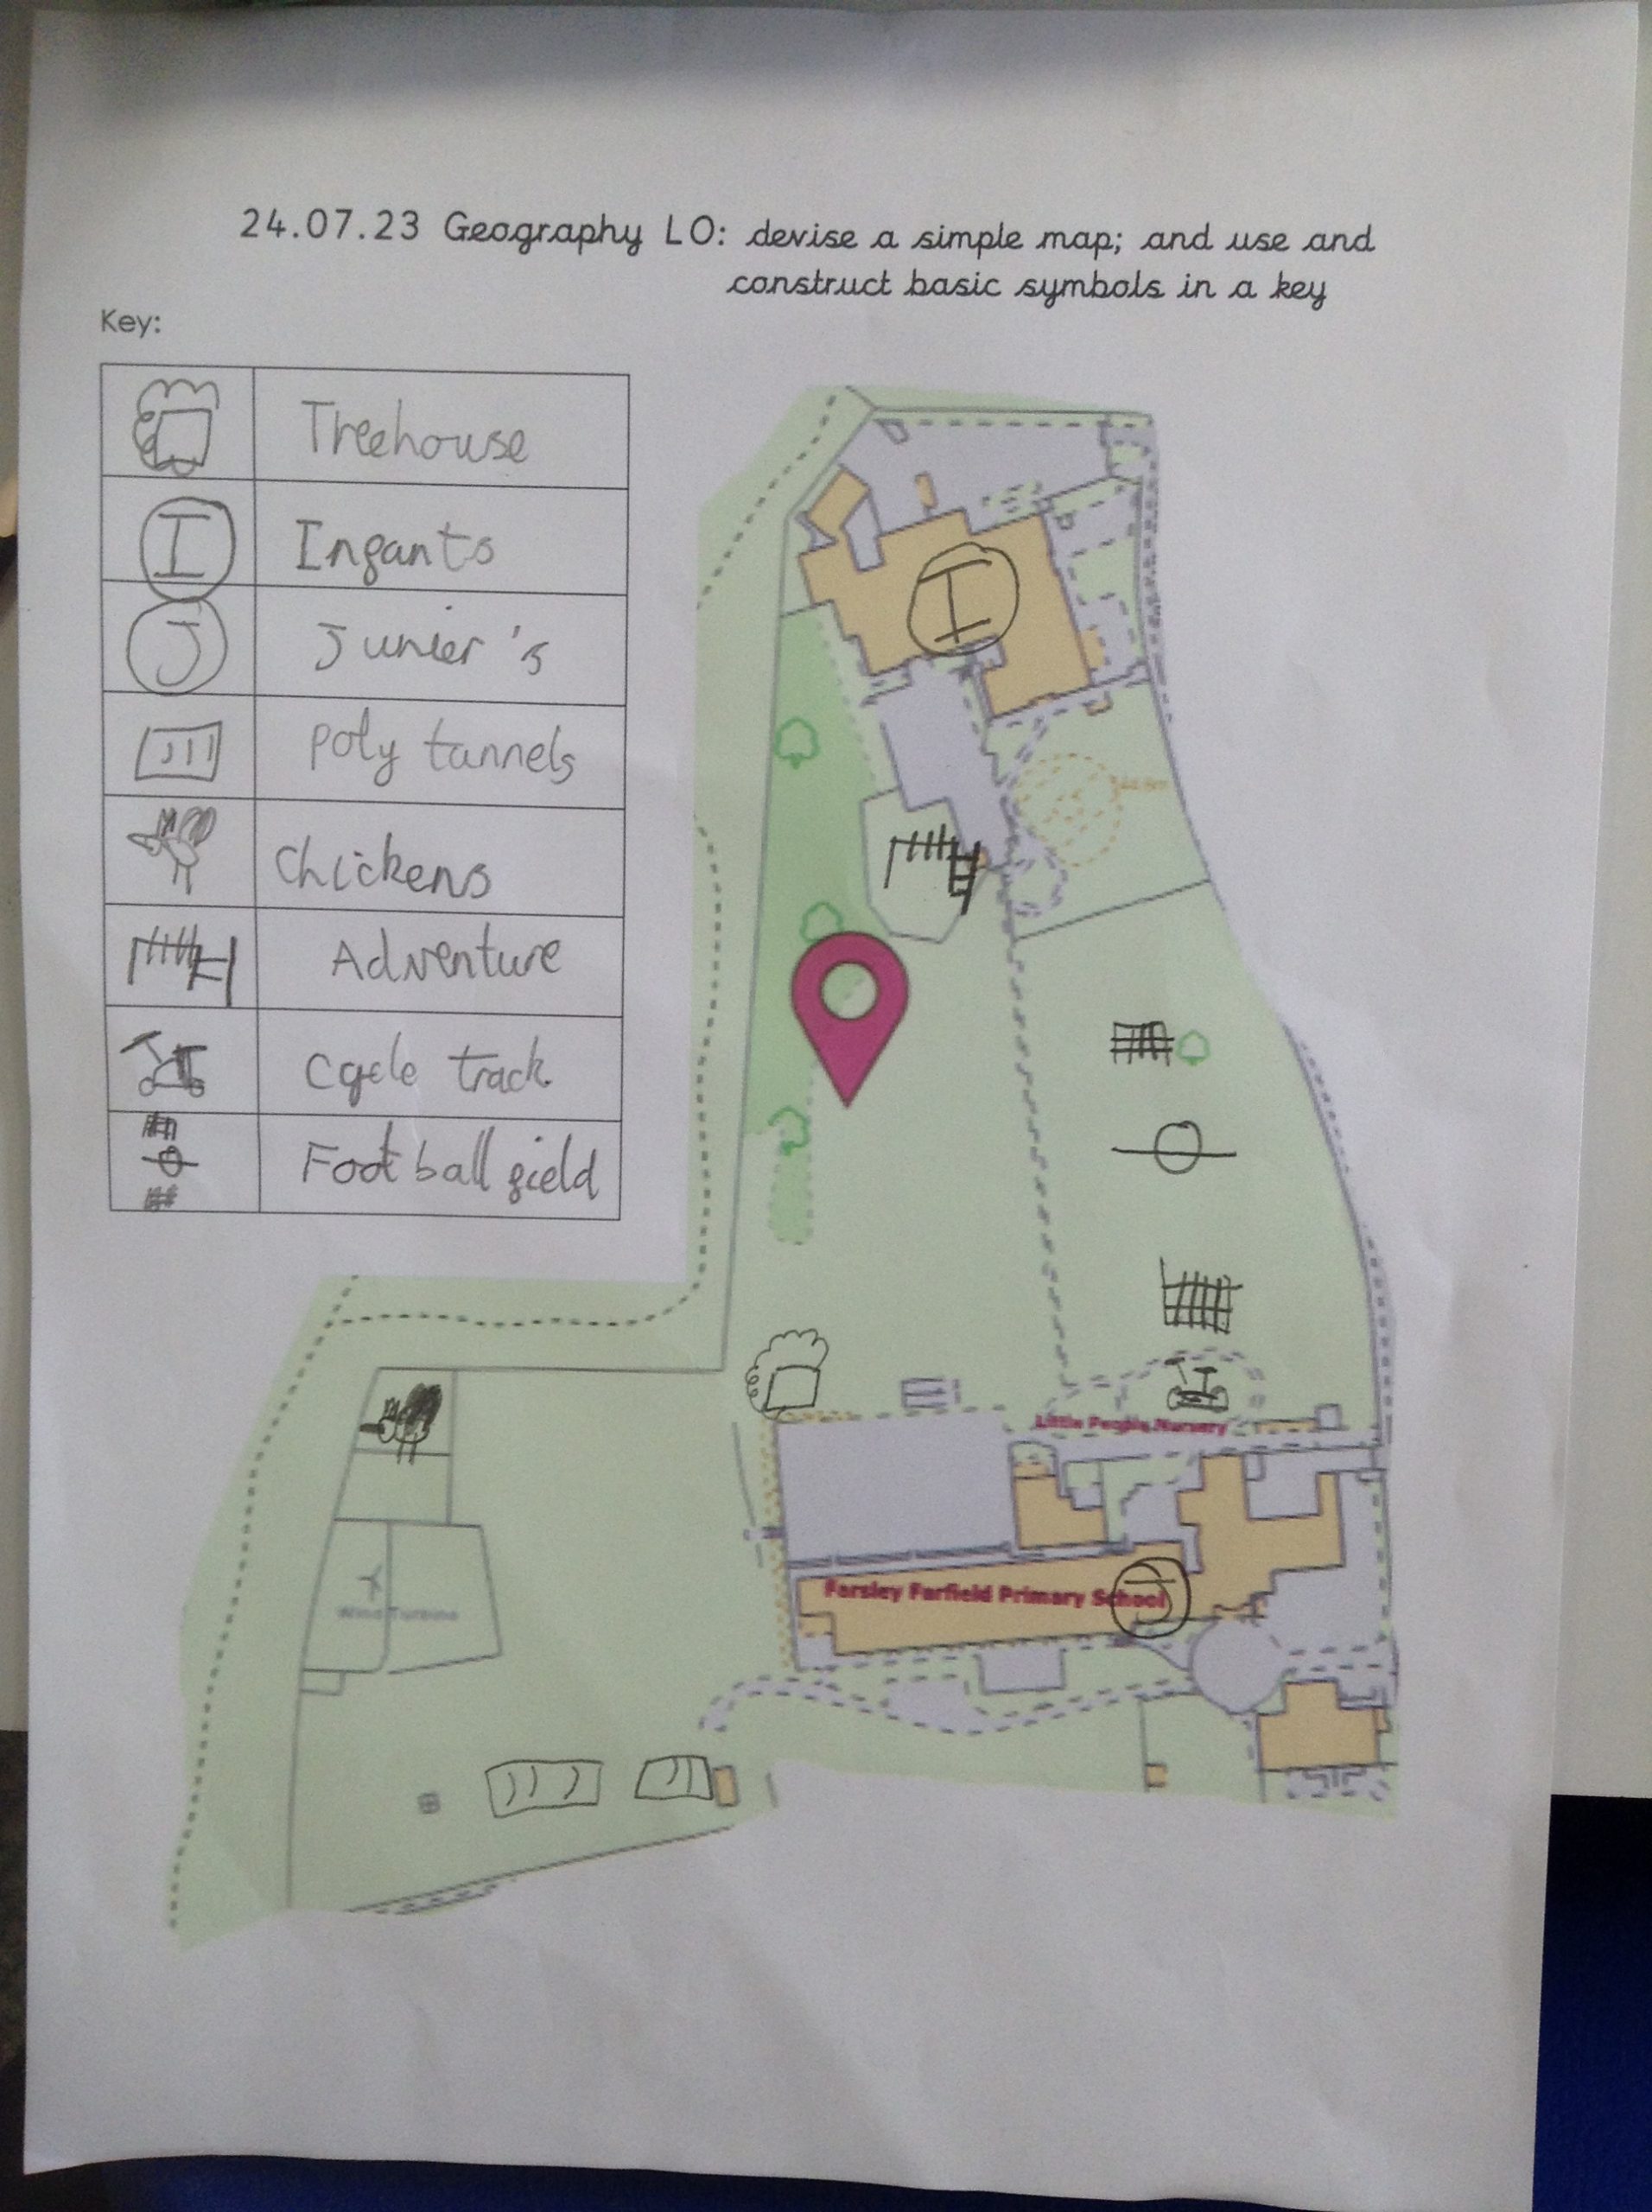 24.07.23 Geography LO: devise a simple map; and use and
construct basic symbols in a key
Key:
Treehouse
I Ingants
J Junier's
Poly tannels
Chickens
Adventure
Cycle track
Foot ball gield
I
Little People Nursery
Farsley Farfield Primary School
J
Wind Turbine